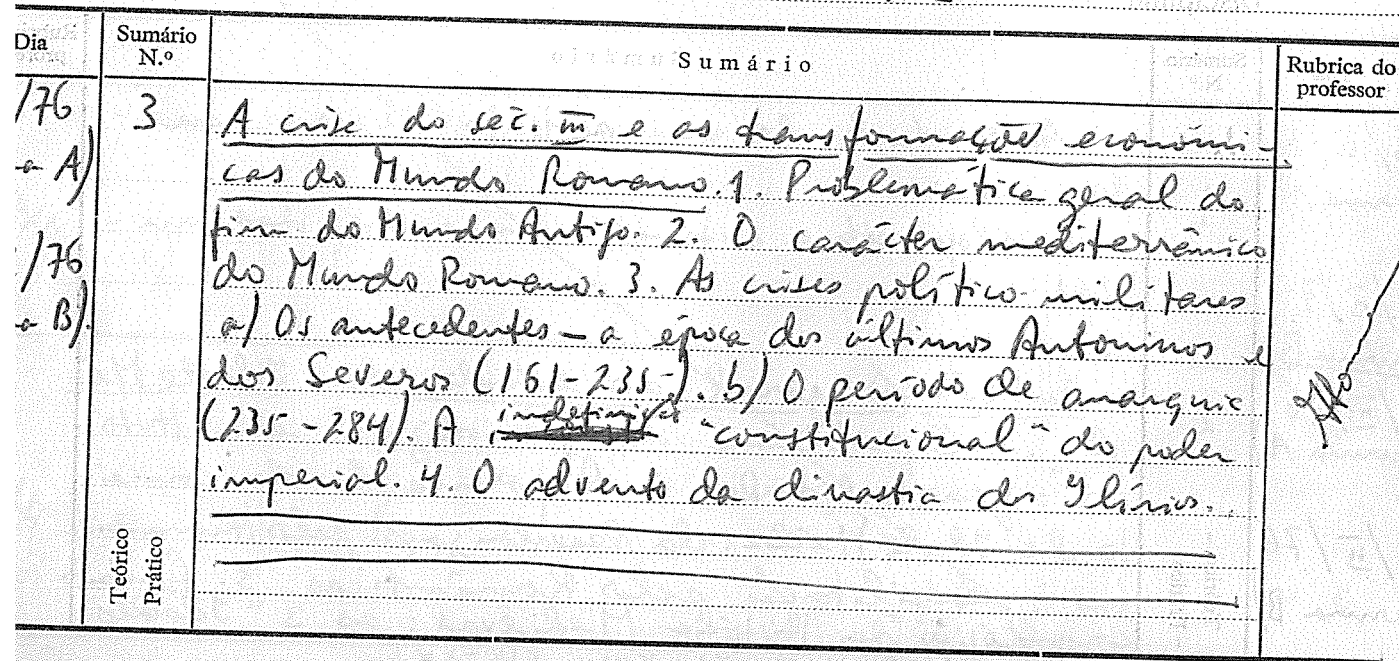 Dia
Sumário N.º
Sumário
Rubrica do professor
/76
A)
/76
B).
3
A crise do séc. III e as transformações económi-
cas do Mundo Romano. 1. Problemática geral do
fim do Mundo Antigo. 2. O carácter mediterrânico
do Mundo Romano. 3. As crises político-militares
a) Os antecedentes - a época dos últimos Antoninos e
dos Severos (161-235-). b) O período de anarquia
(235-284). A "constitucional" do poder
imperial. 4. O advento da dinastia dos Ilírios.
Teórico
Prático